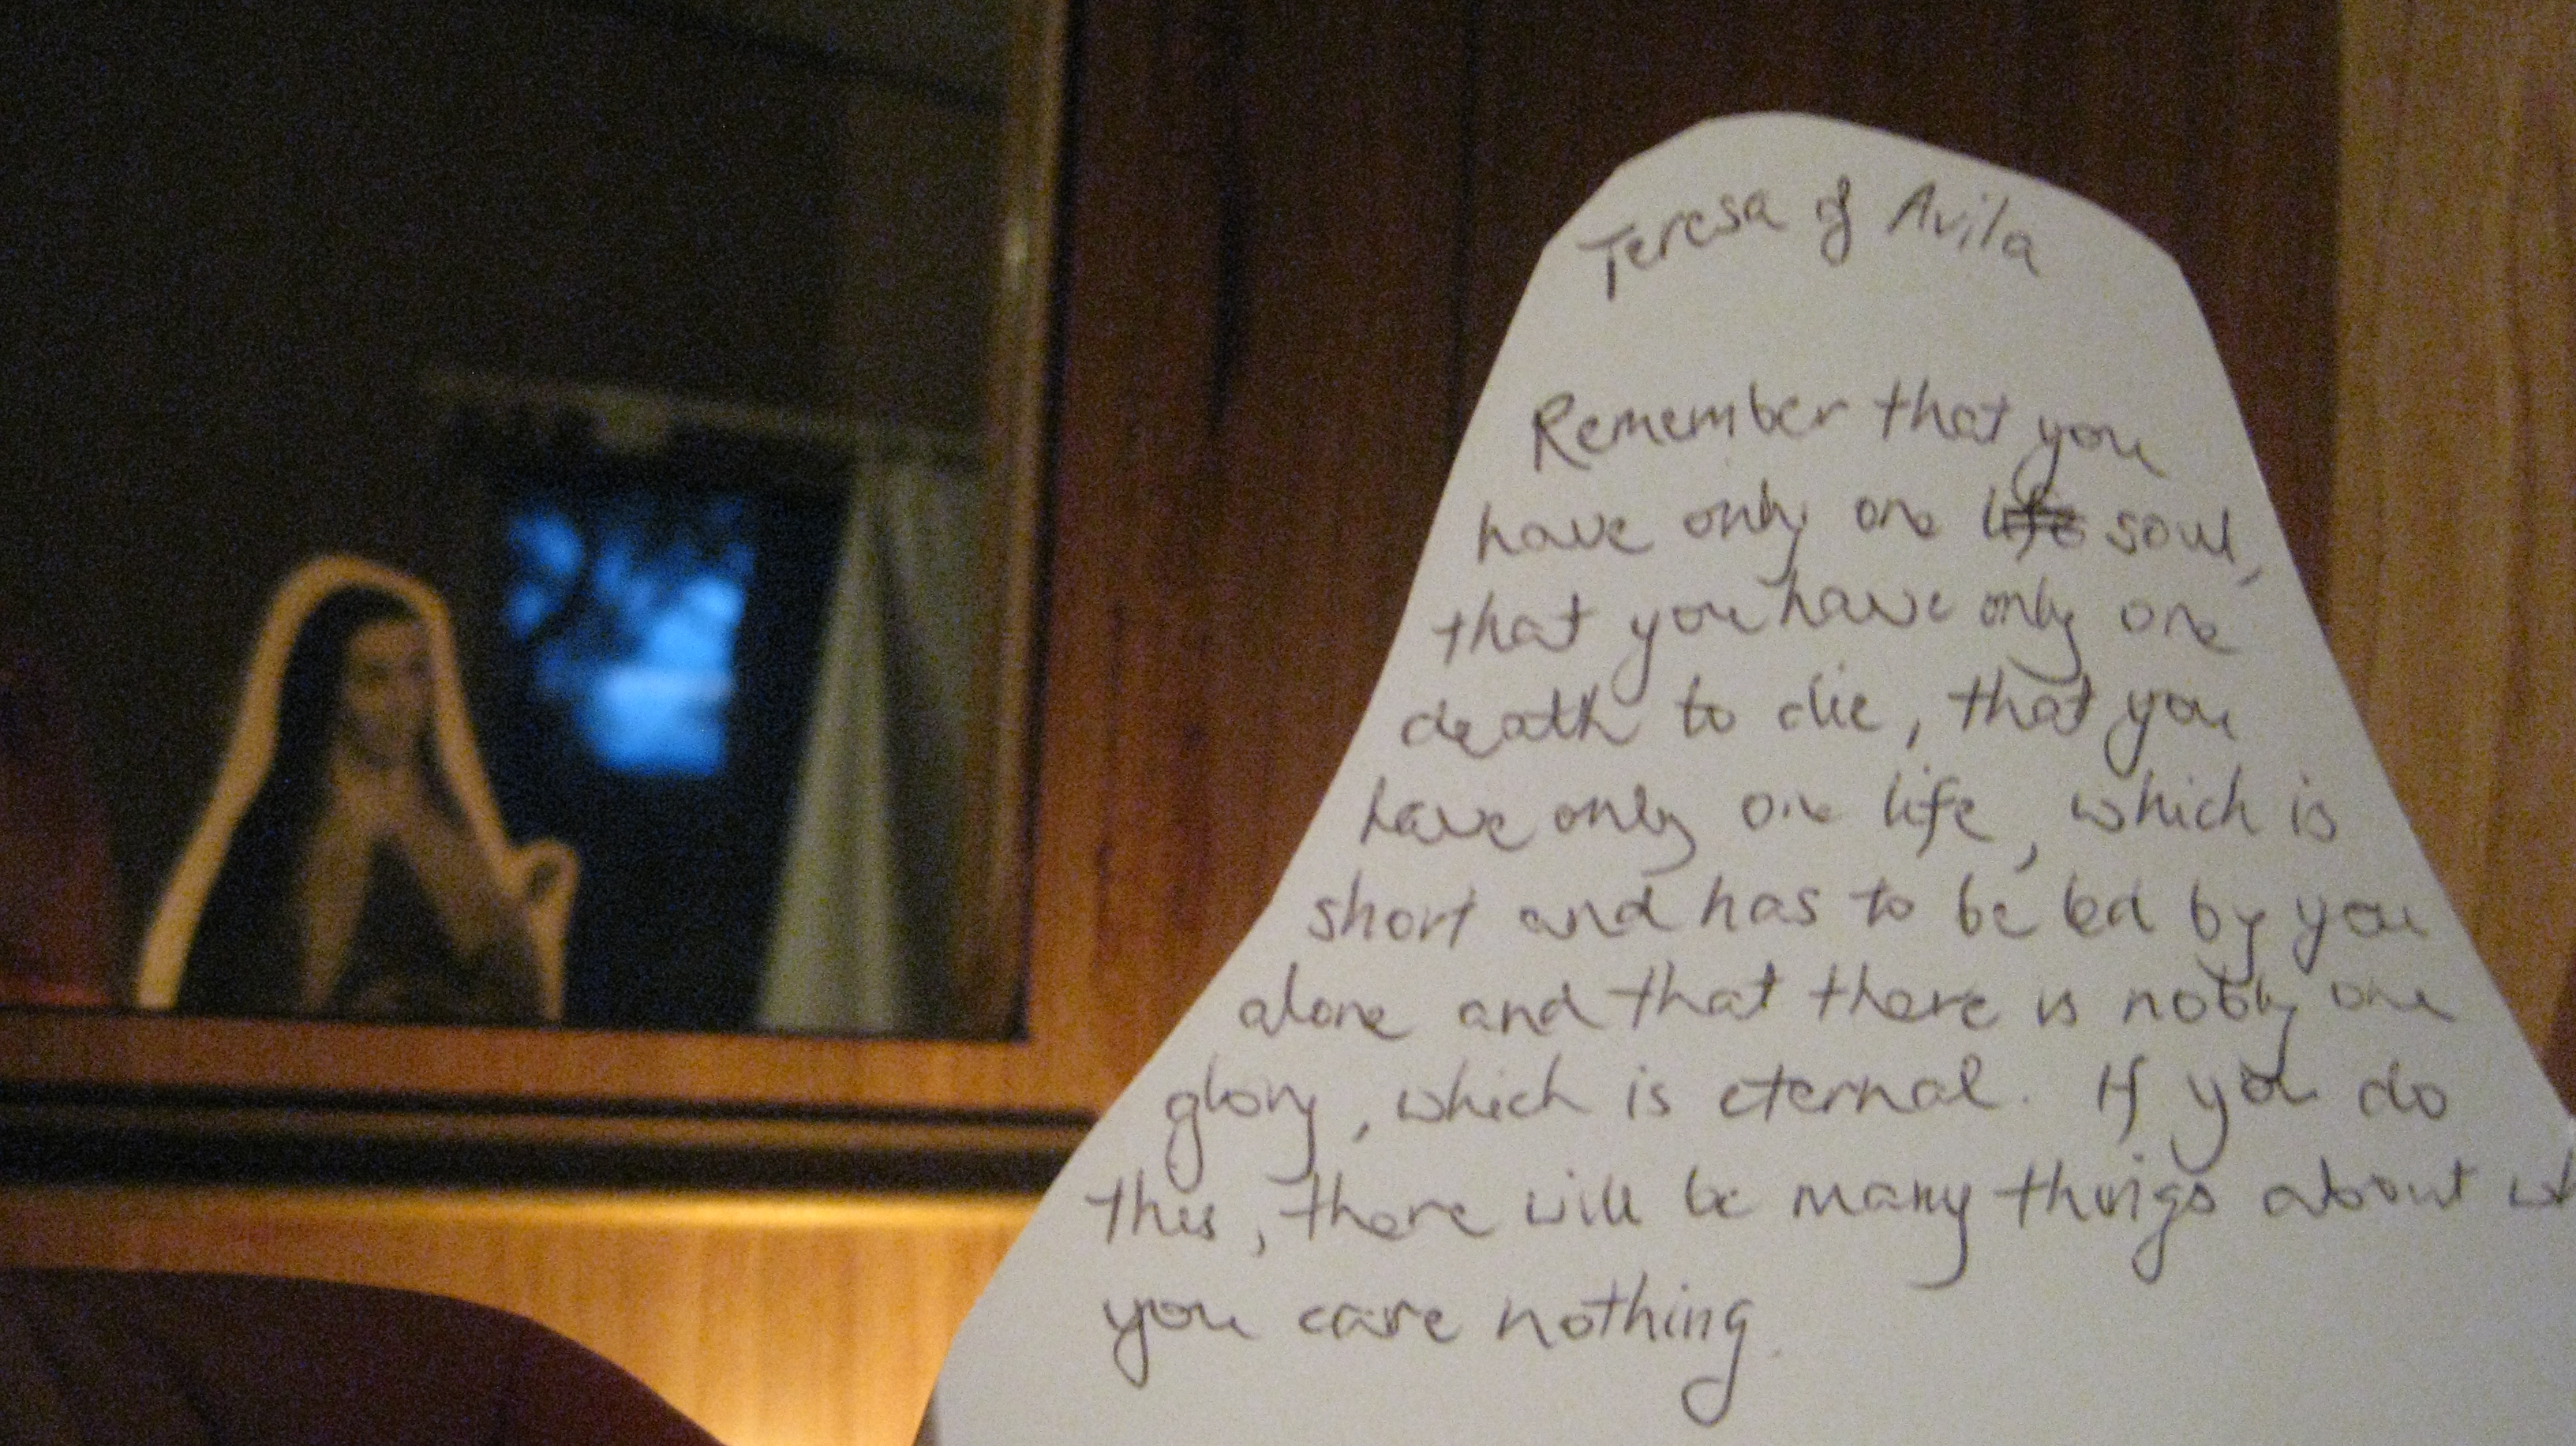 Teresa of Avila
Remember that you
have only one life soul,
that you have only one
death to die, that you
have only one life, which is
short and has to be led by you
alone and that there is only one
glory, which is eternal. If you do
this, there will be many things about wh
you care nothing.